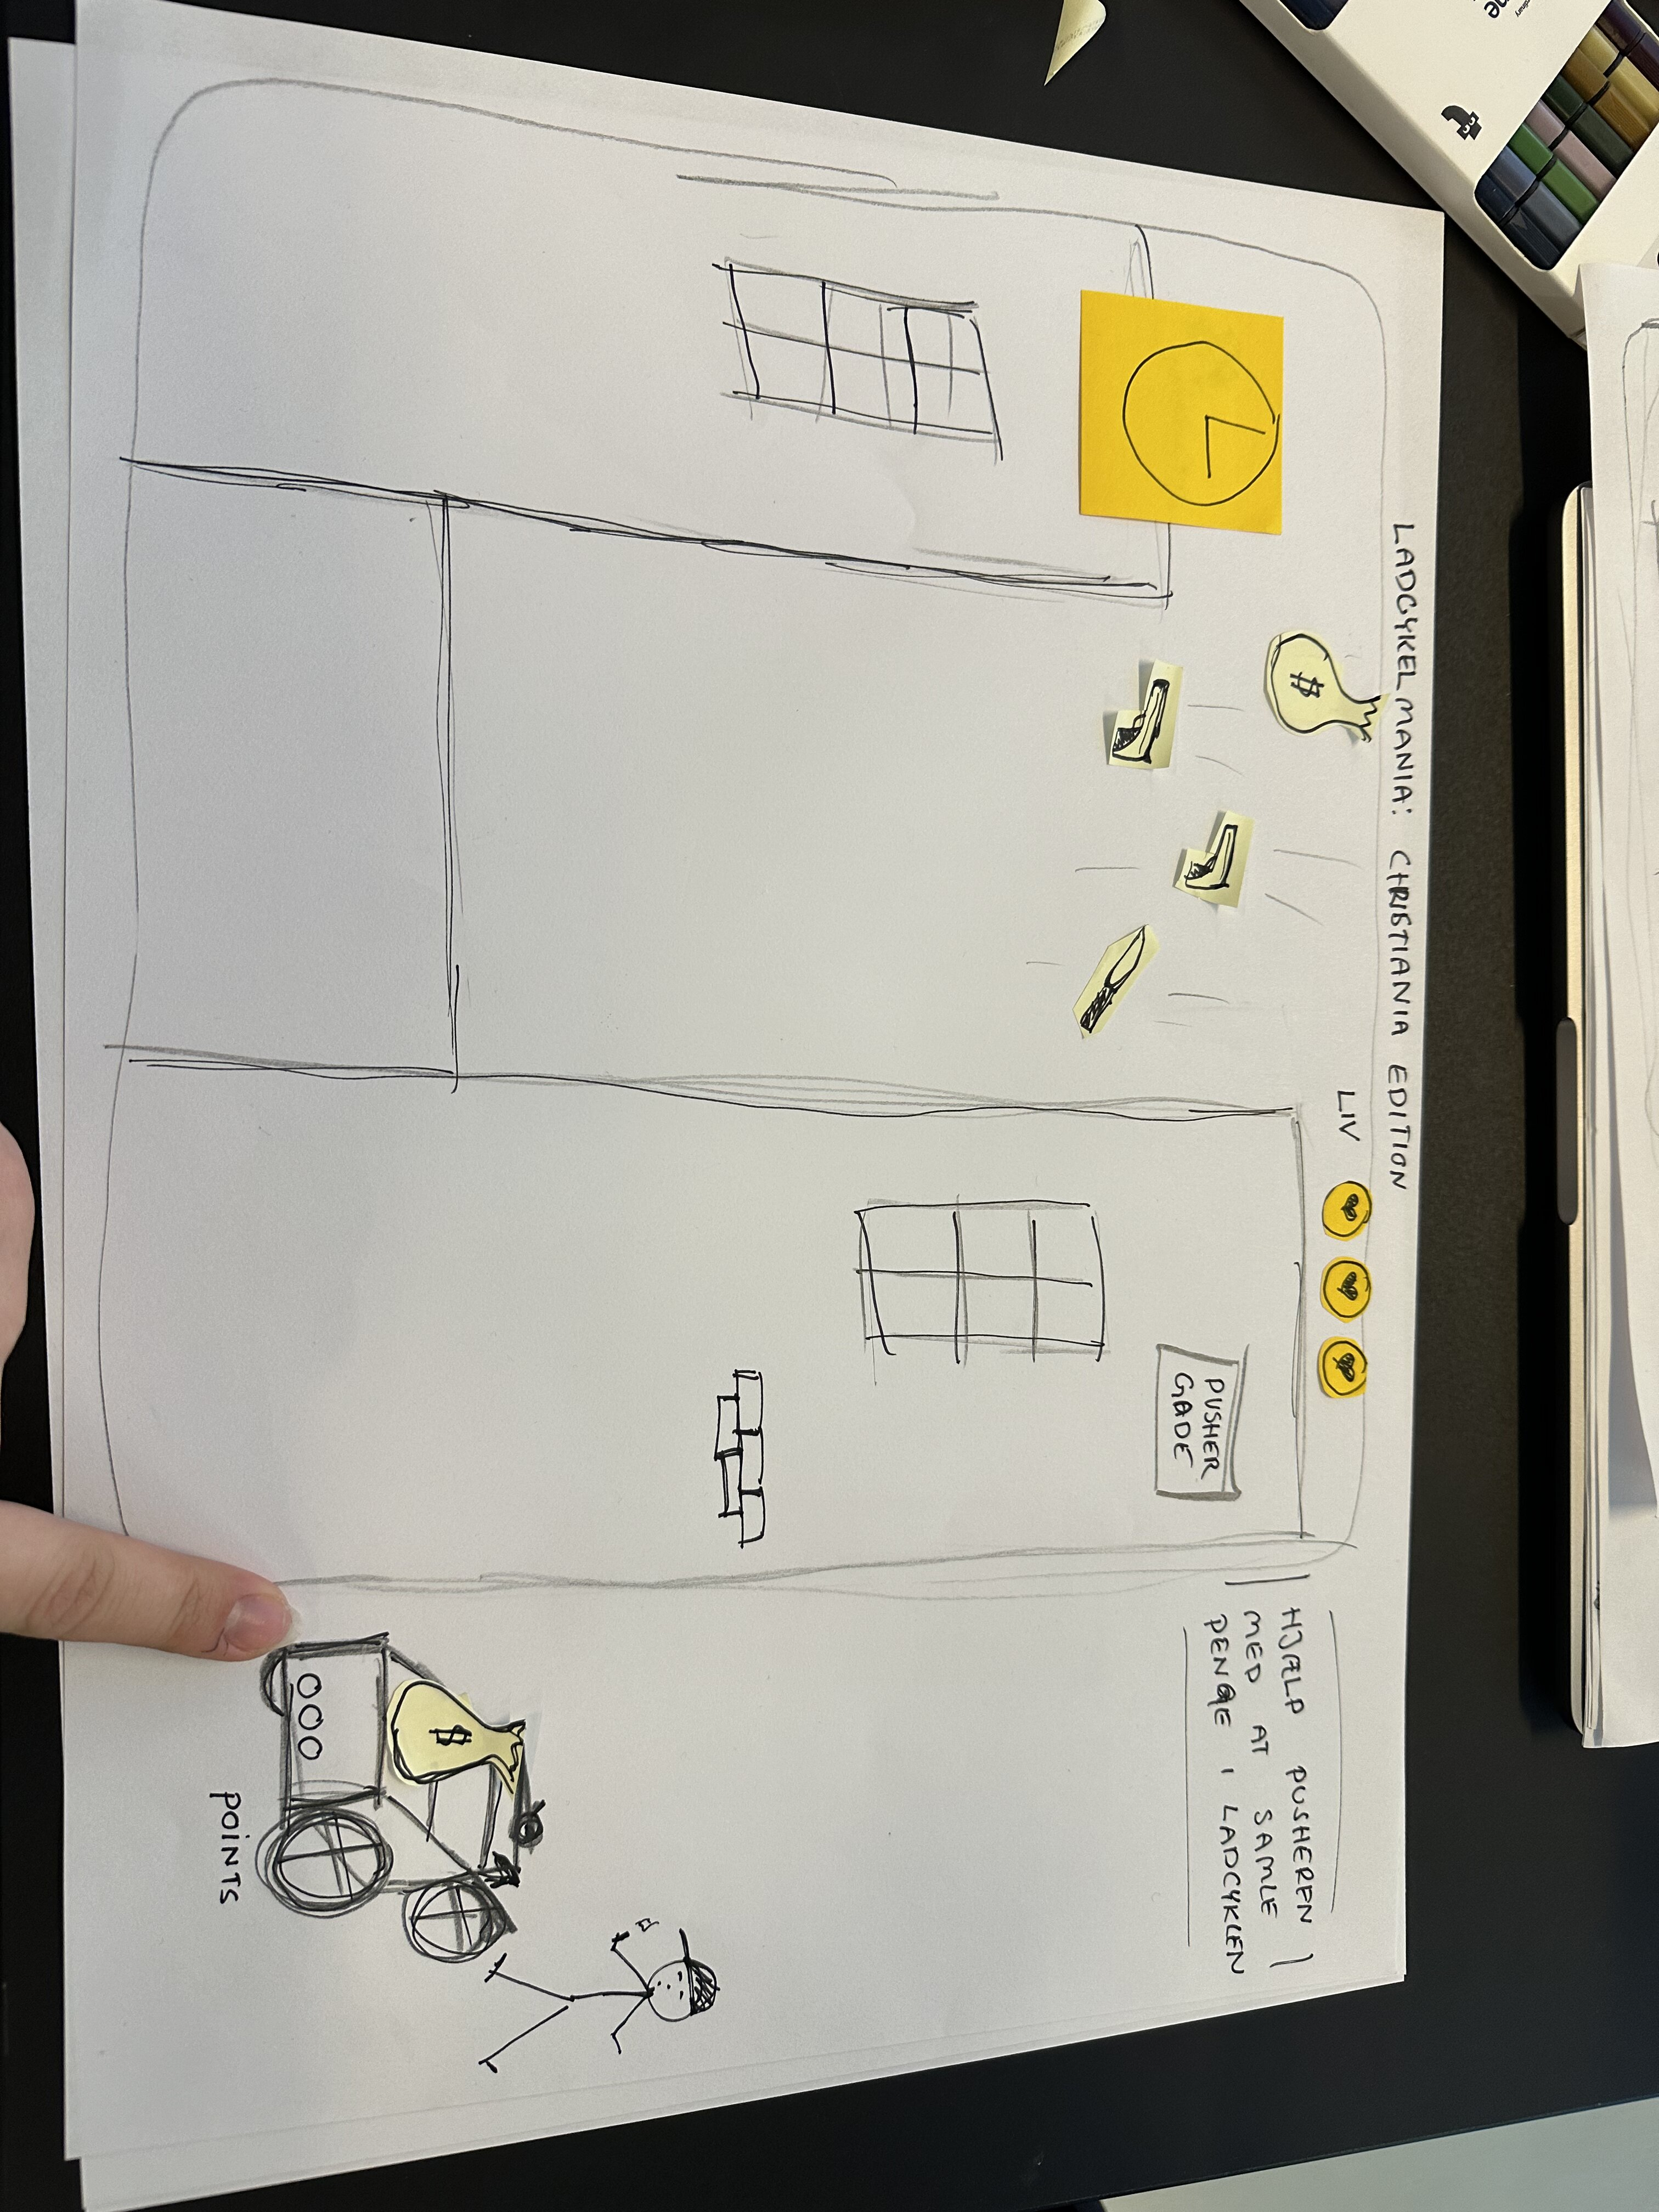 LADCYKELMANIA: CHRISTIANIA EDITION
LIV
$
PUSHER
GADE
HJÆLP PUSHEREN
MED AT SAMLE
PENGE I LADCYKLEN
$
000
POINTS